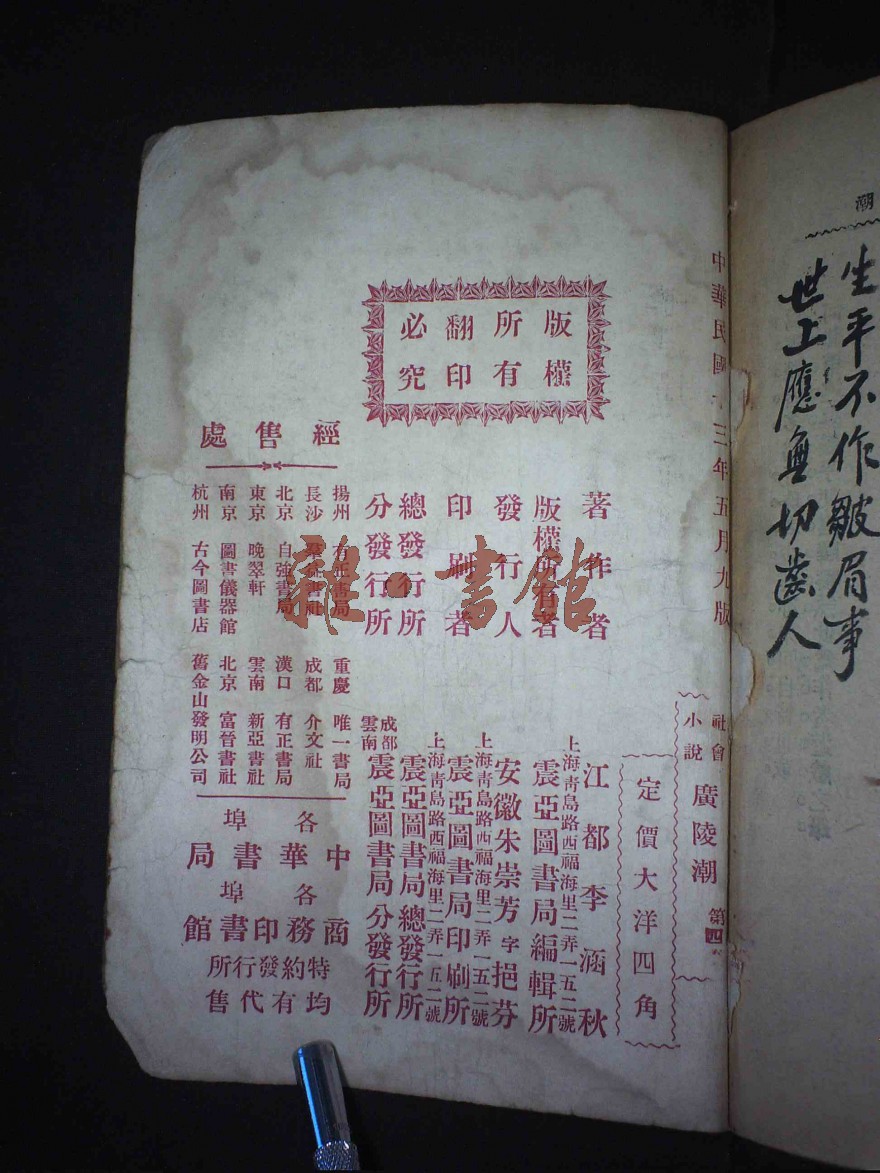 潮
生平不作皺眉事
世上應無切齒人
中華民國十三年五月九版
社會小說 廣陵潮 第四
定價大洋四角
版權所有
翻印必究
著作者 江都李涵秋
版權所有者 上海青島路西福海里二弄一五二號 震亞圖書局編輯所
發行人 安徽朱崇芳字挹芬
印刷者 上海青島路西福海里二弄一五二號 震亞圖書局印刷所
總發行所 上海青島路西福海里二弄一五二號 震亞圖書局總發行所
分發行所 成都 雲南 震亞圖書局分發行所
經售處
揚州 有正書局 重慶 唯一書局
長沙 書社 成都 介文社
北京 自強書局 漢口 有正書局
東京 晚翠軒 雲南 新亞書社
南京 圖書儀器館 北京 富晉書社
杭州 古今圖書店 舊金山發明公司
各埠
中華書局
各埠
商務印書館
特約發行所
均有代售
雜·書館